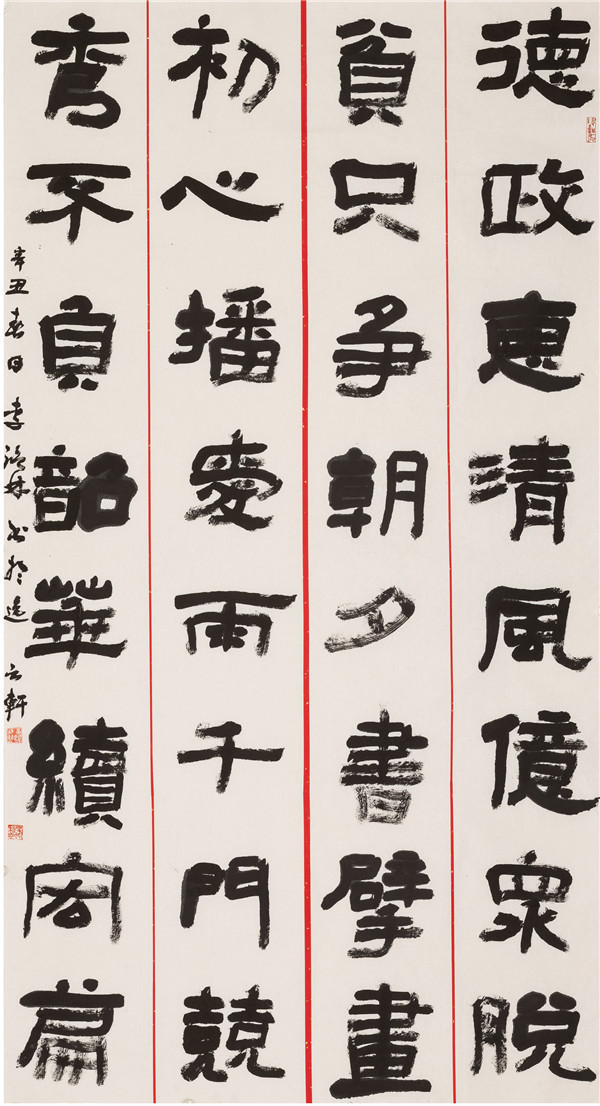 德政惠清風億眾脫
貧只争朝夕書擘畫
初心播愛雨千門競
秀不負韶華續宏篇
辛丑春日李林书於云軒